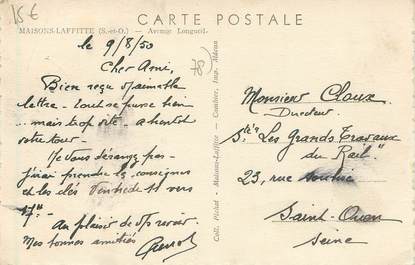 15€
CARTE POSTALE
MAISONS-LAFFITTE (S.-et-O.) — Avenue Longueil.
le 9/8/50
78)
Cher Ami,
Bien reçu v/aimable
lettre - Tout se passe bien
... mais trop vite - a bientot
votre tour -
Ne vous dérangez pas -
j'irai prendre les consignes
et les clés Vendredi 11 vers
17h -
Au plaisir de v/s revoir.
Mes bonnes amitiés
Coll. Pichot - Maisons-Laffitte - Combier, Imp. Mâcon
Monsieur Claux
Directeur
Sté "Les Grands Travaux
du Rail"
23, rue
Saint-Ouen
Seine